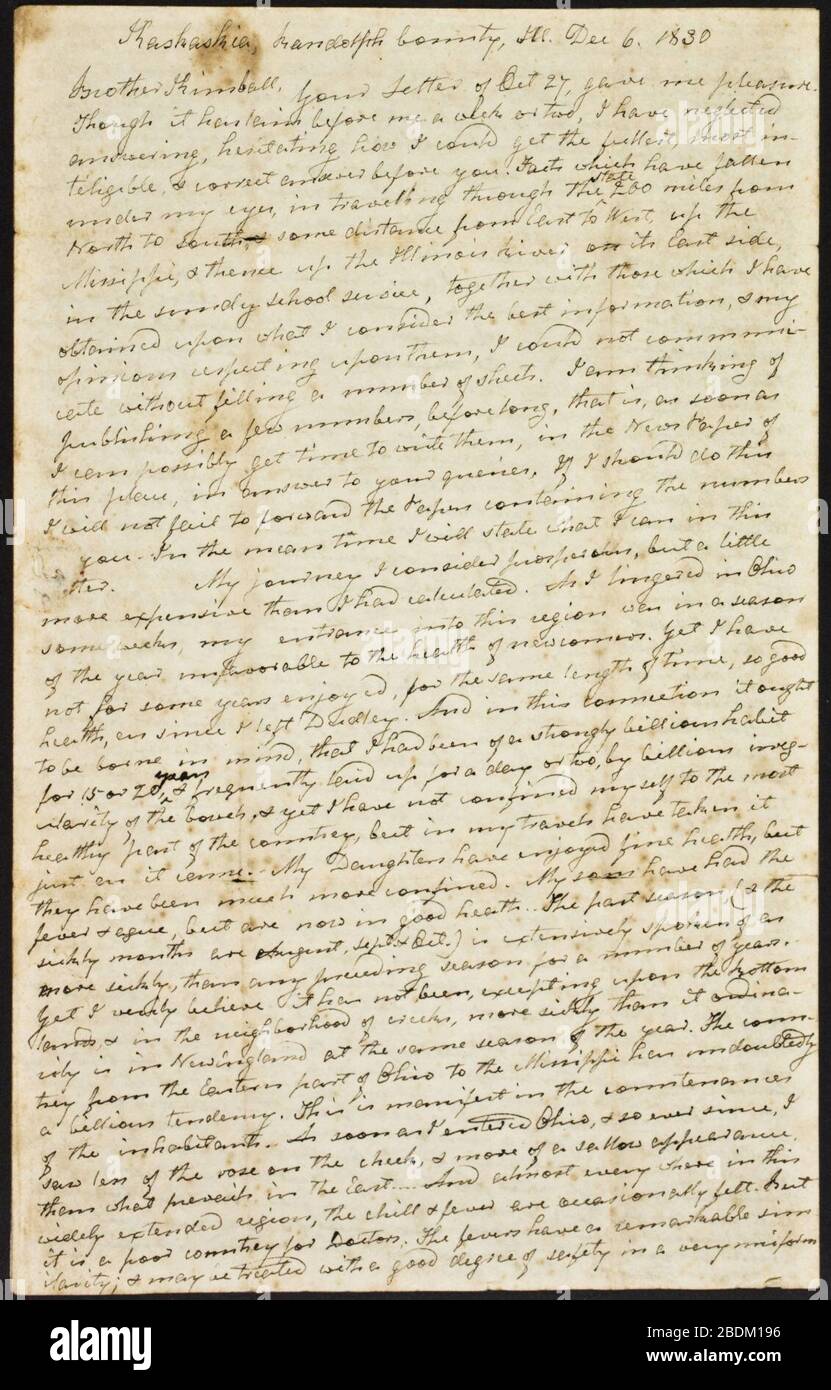 Kaskaskia, Randolph County, Ill. Dec 6. 1830
Brother Kimball, Your Letter of Oct 27, gave me pleasure.
Though it has lain before me a week or two, I have neglected
answering, hesitating how I could get the fullest, most in-
teligible, & correct answer before you. Facts which have fallen
under my eye, in travelling through the state 200 miles from
North to South, & some distance from East to West, up the
Missippi, & thence up the Illinois River on its East side,
in the sunday school service, together with those which I have
obtained upon what I consider the best information, & my
opinions respecting upon them, I could not communi-
cate without filling a number of sheets. I am thinking of
publishing a few numbers, before long, that is, as soon as
I can possibly get time to write them, in the News Paper of
this place, in answer to your queries. If I should do this
I will not fail to forward the Papers containing the numbers
you. In the mean time I will state what I can in this
tter. My journey I consider prosperous, but a little
more expensive than I had calculated. As I lingered in Ohio
some weeks, my entrance into this region was in a season
of the year unfavorable to the health of newcomers. Yet I have
not for some years enjoyed, for the same length of time, so good
health, as since I left Dudley. And in this connection it ought
to be borne in mind, that I had been of a strongly billious habit
for 15 or 20 years, & frequently laid up for a day or two, by billious irreg-
ularity of the bowels, & yet I have not confined myself to the most
healthy part of the country, but in my travels have taken it
just as it came. My Daughters have enjoyed fine health, but
they have been much more confined. My sons have had the
fever & ague, but are now in good heath. The past season (& the
sickly months are August, Sept & Oct.) is extensively spoken of as
more sickly, than any preceding season for a number of years.
Yet I verily believe it has not been, excepting upon the bottom
lands, & in the neighborhood of creeks, more sickly than it ordina-
rily is in Newingland at the same season of the year. The coun-
try from the Eastern part of Ohio to the Missippi has undoubtedly
a billious tendency. This is manifest in the countenances
of the inhabitants. As soon as I entered Ohio, & so ever since, I
saw less of the rose on the cheek, & more of a sallow appearance,
than what prevails in the East. And almost every where in this
widely extended region, the chill & fever are occasionally felt. But
it is a poor country for Doctors. The fevers have a remarkable sim
ilarity; & may be treated with a good degree of safety in a very uniform
alamy
Image ID: 2BDM196
www.alamy.com